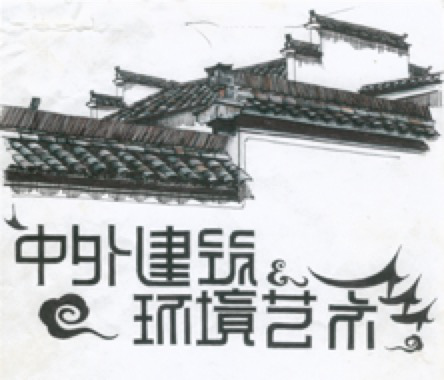 中外建筑&
环境艺术